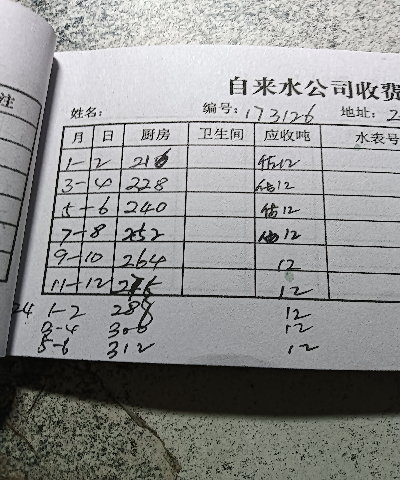 注
自来水公司收费
姓名: 编号: 173126 地址: 2
月 日 厨房 卫生间 应收吨 水表号
1-2 216 估12
3-4 228 估12
5-6 240 估12
7-8 252 估12
9-10 264 12
11-12 276 12
24 1-2 288 12
3-4 300 12
5-6 312 12